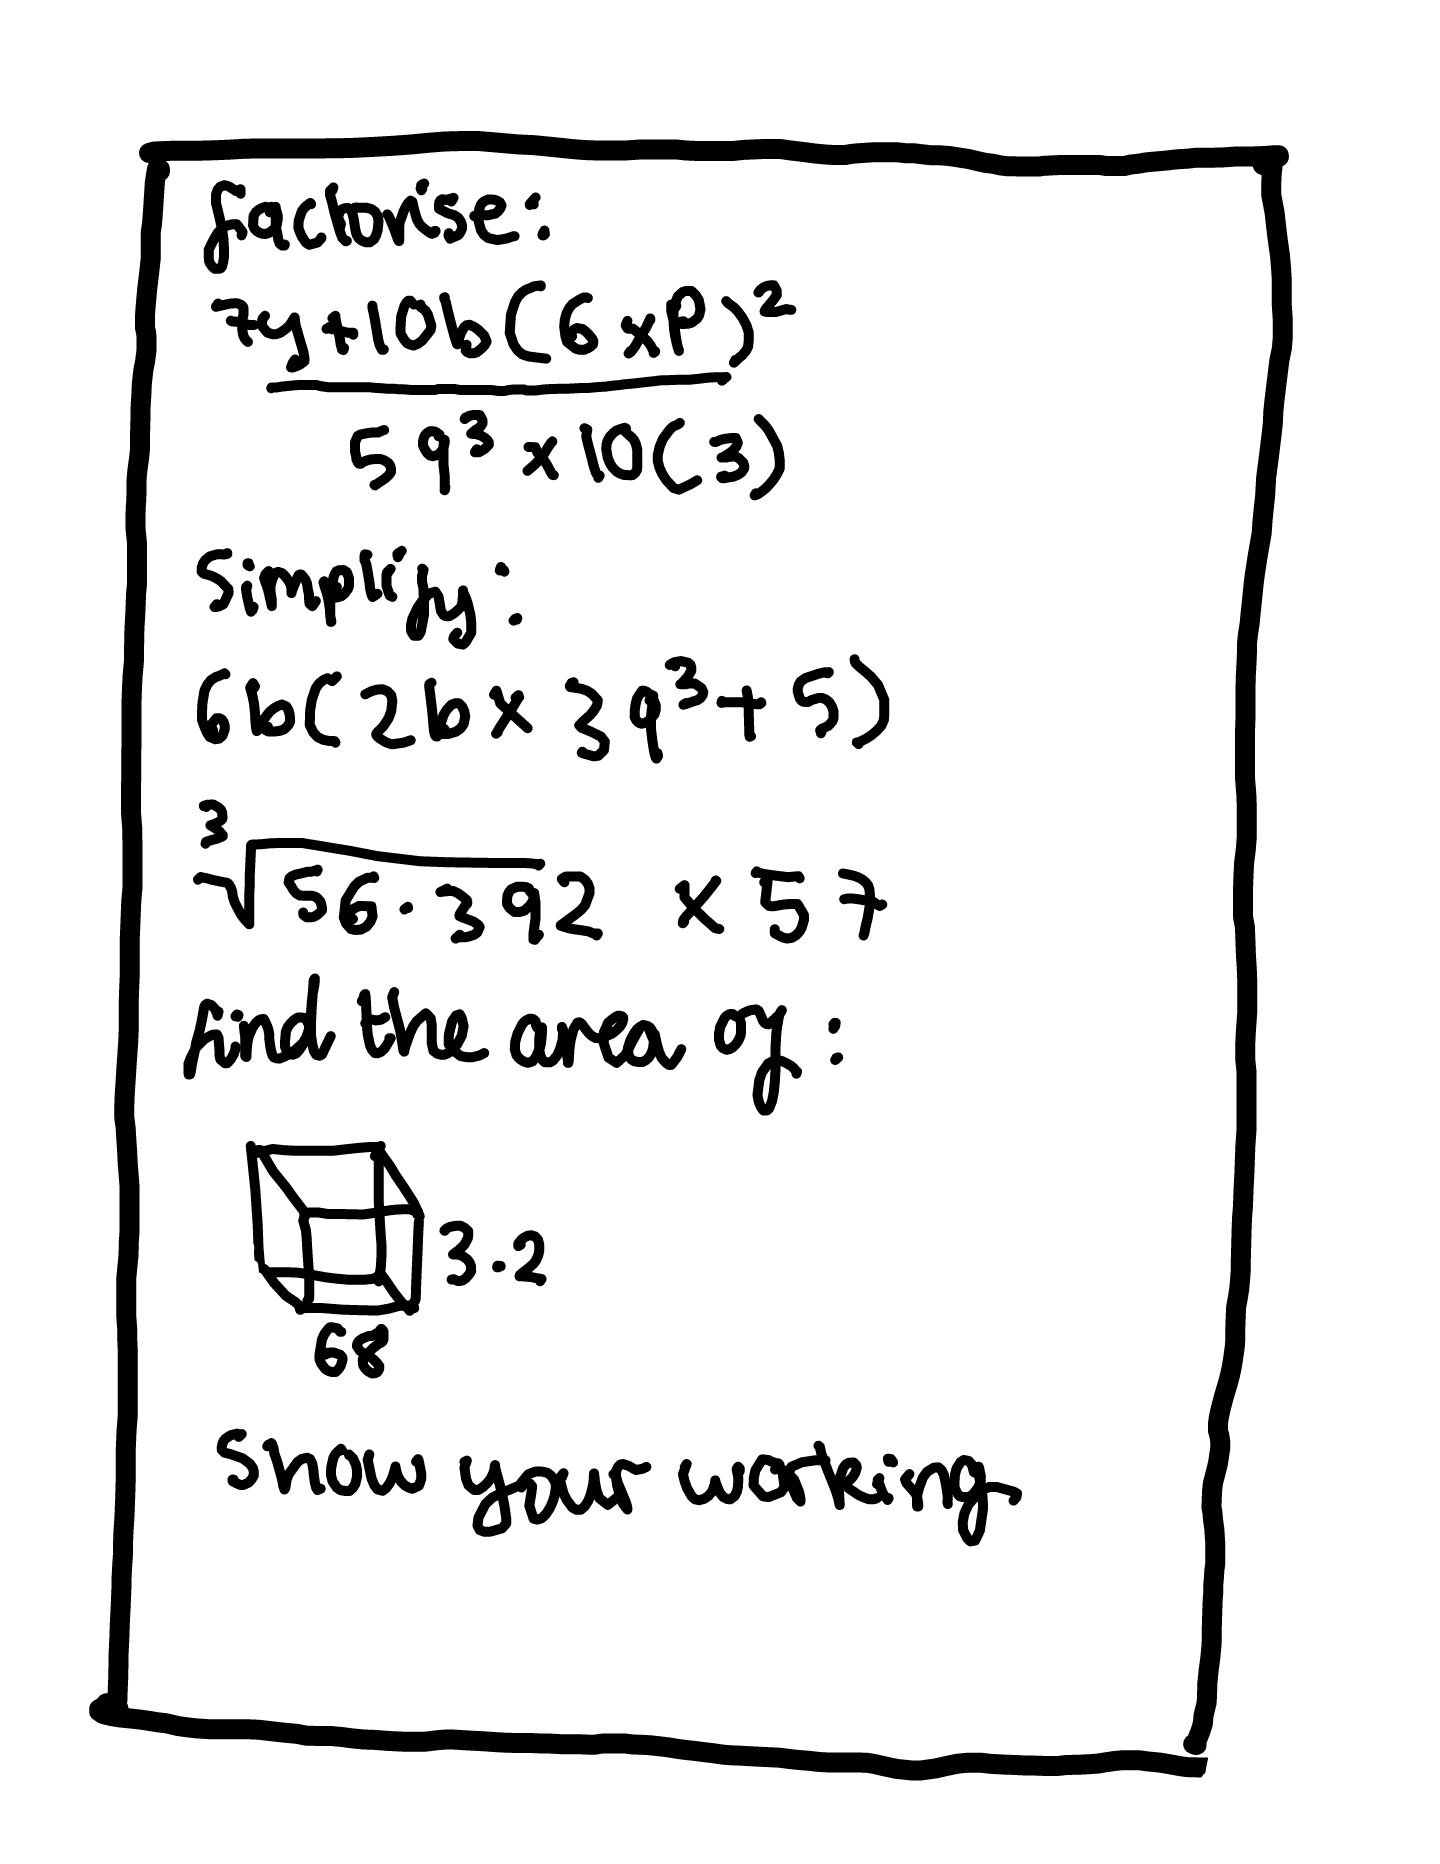 factorise:
7y+10b(6xP)²
5q³x10(3)
Simplify:
6b(2bx3q³+5)
³√56.392 x 57
find the area of:
3.2
68
Show your working.